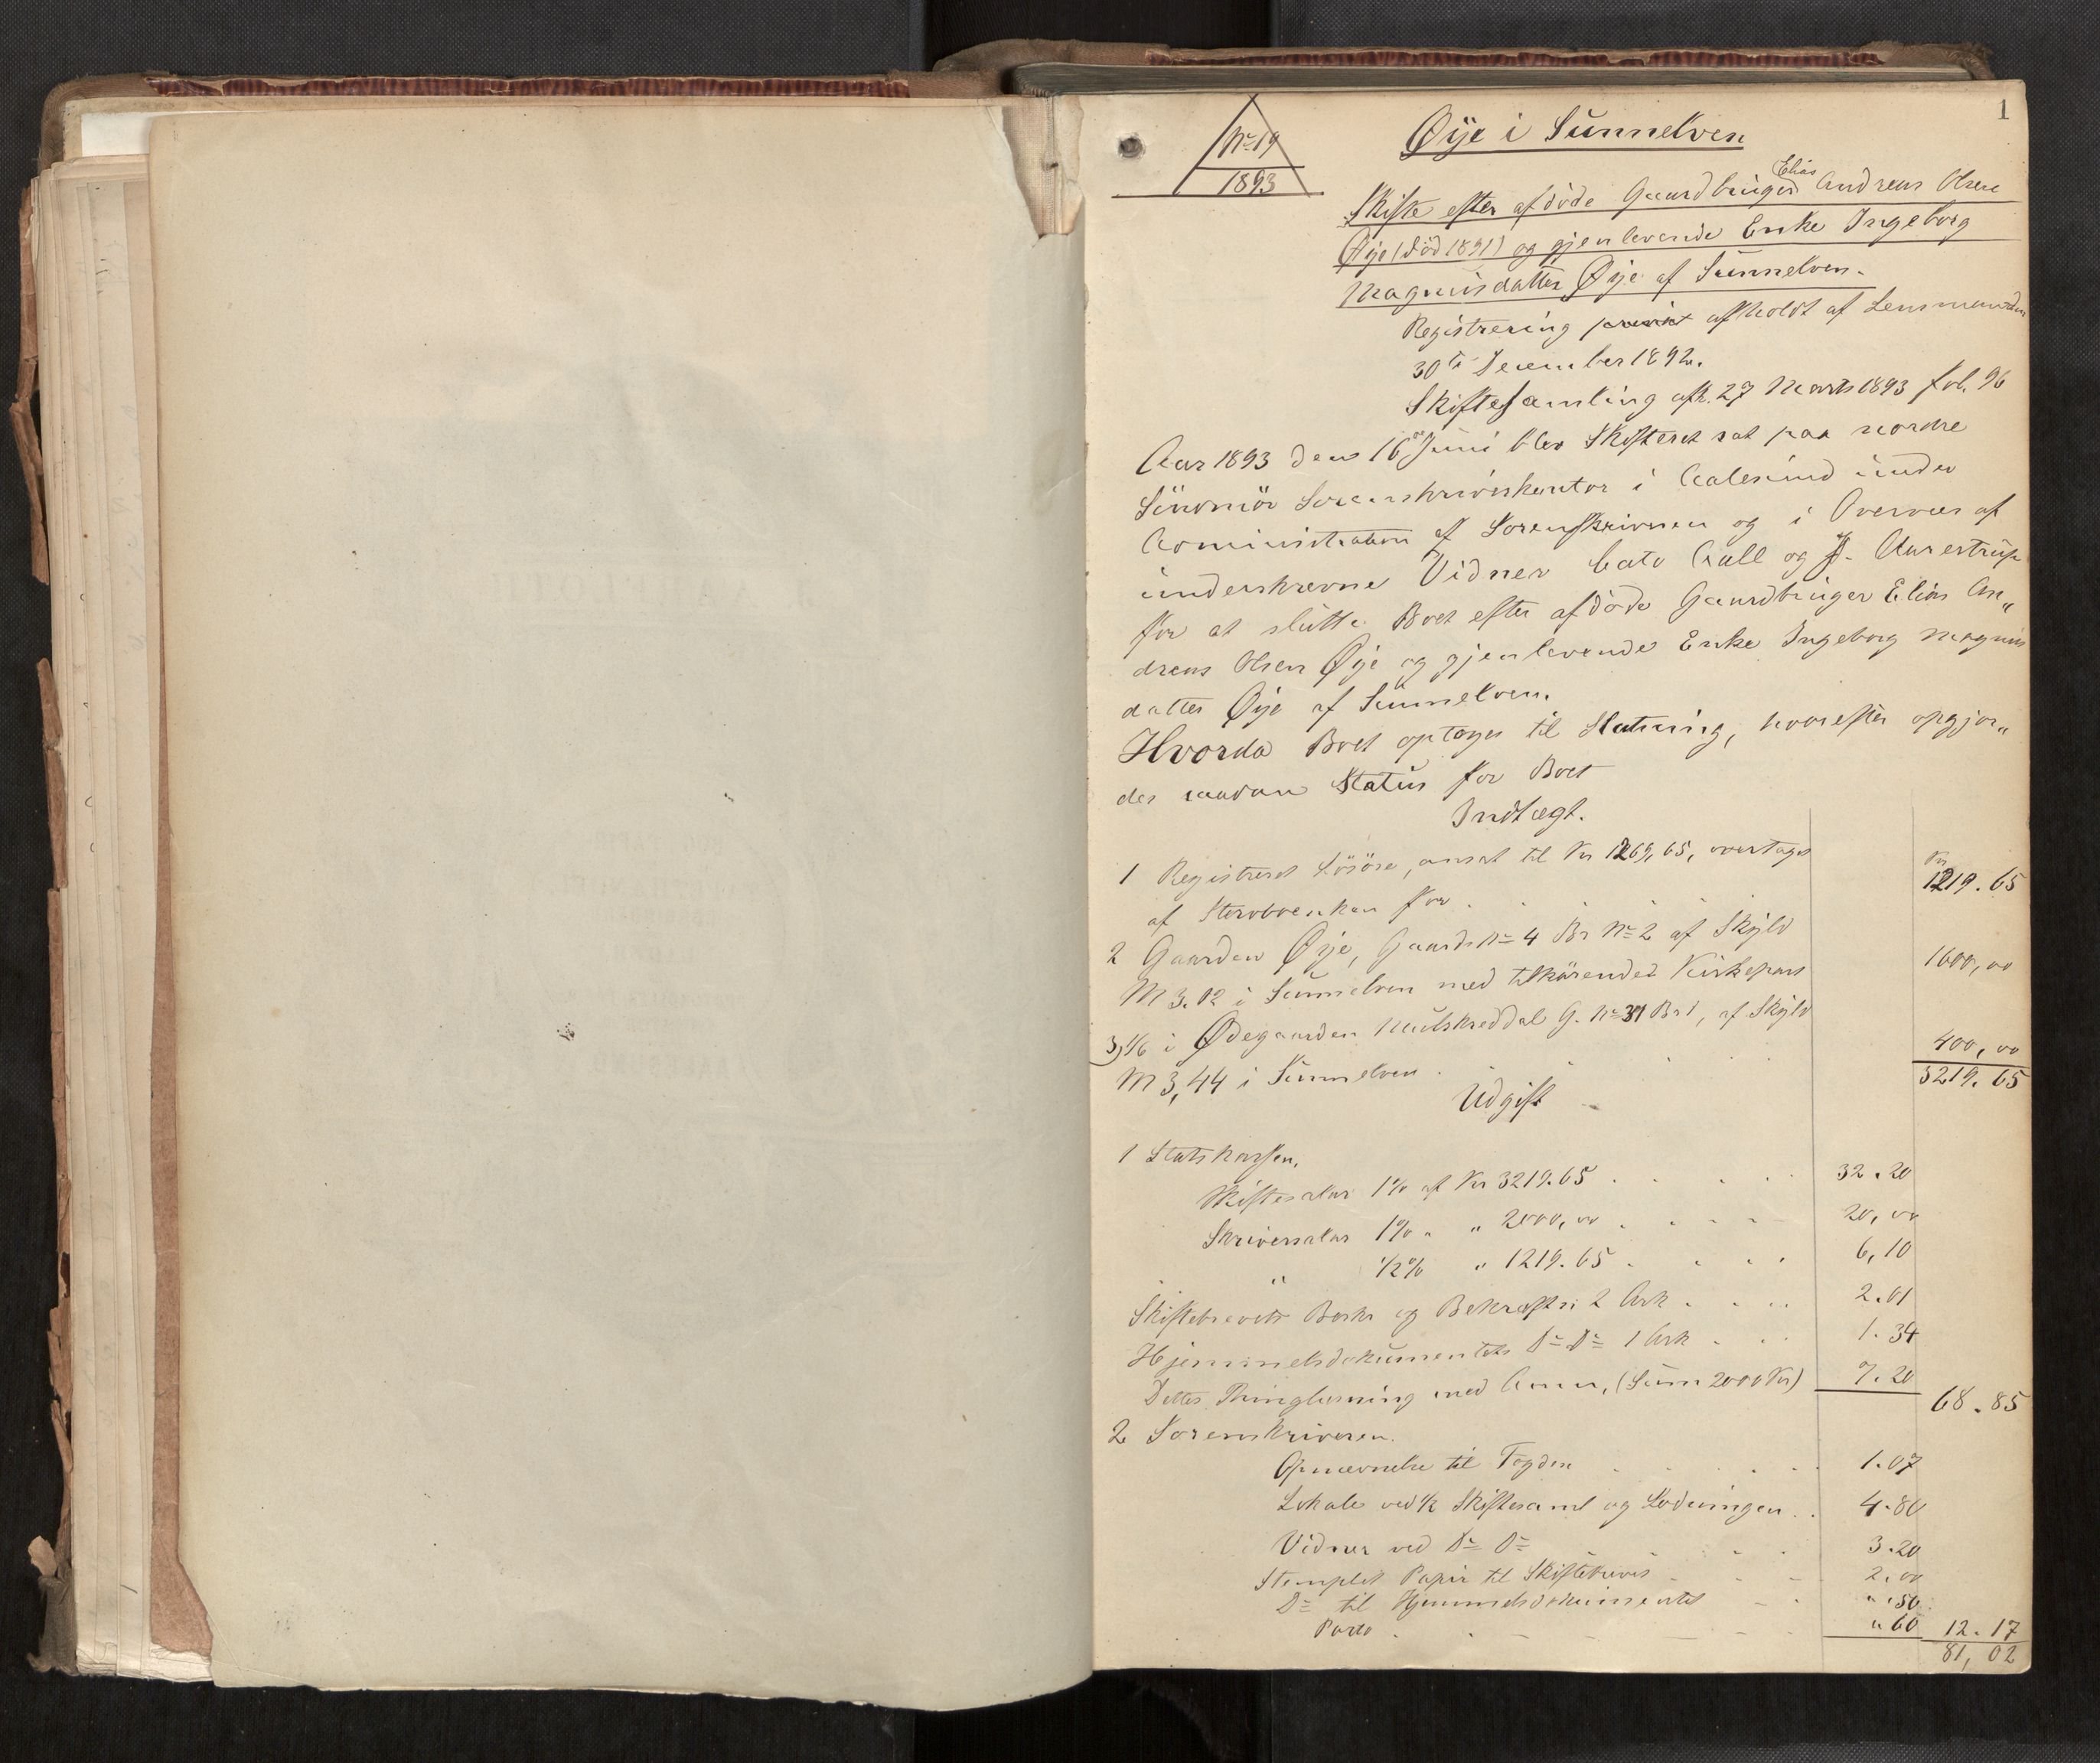 1
No 19
1893
Øije i Sunnelven
Skifte efter afdøde Gaardbruger Elias Andreas Olsen
Øije (død 1891) og gjenlevende Enke Ingeborg
Magnusdatter Øije af Sunnelven.
Registrering privat afholdt af Lensmanden
30te December 1892.
Skiftesamling afh. 27 Marts 1893 fol. 96
Aar 1893 den 16de Juni blev Skifteret sat paa nordre
Søndmør Sorenskriverkontor i Aalesund under
Administration af Sorenskriveren og i Overvær af
underskrevne Vidner Cato Aall og J. Aarestrup
for at slutte Boet efter afdøde Gaardbruger Elias An„
dreas Olsen Øije og gjenlevende Enke Ingeborg Magnus
datter Øije af Sunnelven.
Hvorda Boet optages til Slutning, hvorefter opgjør„
des saadan Status for Boet
Indtægt.
1 Registreret Løsøre, ansat til Kr 1269,65, overtaget
af Stervboenken for . . . . Kr 1219.65
2 Gaarden Øije, Gaards No 4 Br No 2 af Skyld
M 3.12 i Sunnelven med tilhørende Kirkepart 1600,00
3) 1/6 i Ødegaarden Nutskreddal G. No 31 Br 1, af Skyld
M 3,44 i Sunnelven . . . . 400,00
3219.65
Udgift
1 Statskassen.
Skiftesalær 1% af Kr 3219.65 . . . . 32.20
Skriversalær 1% „ „ 2000,00 . . . . 20,00
„ 1/2% „ 1219.65 . . . . 6,10
Skiftebrevets Beskr og Bekræftn: 2 Ark . . . . 2.01
Hjemmelsdokumentets Do Do 1 Ark . . . 1.34
Dettes Thinglæsning med Anm, (Sum 2000 Kr) 7.20
68.85
2 Sorenskriveren.
Opnævnelse til Fogden . . . . 1.07
Lokale ved 1/2 Skiftesaml og Slutningen . . 4.80
Vidner ved Do Do . . . 3.20
Stemplet Papir til Skiftebrevet . . . 2.00
Do til Hjemmelsdokumentet . . „ .50
Porto . . . . „ 60 12.17
81,02